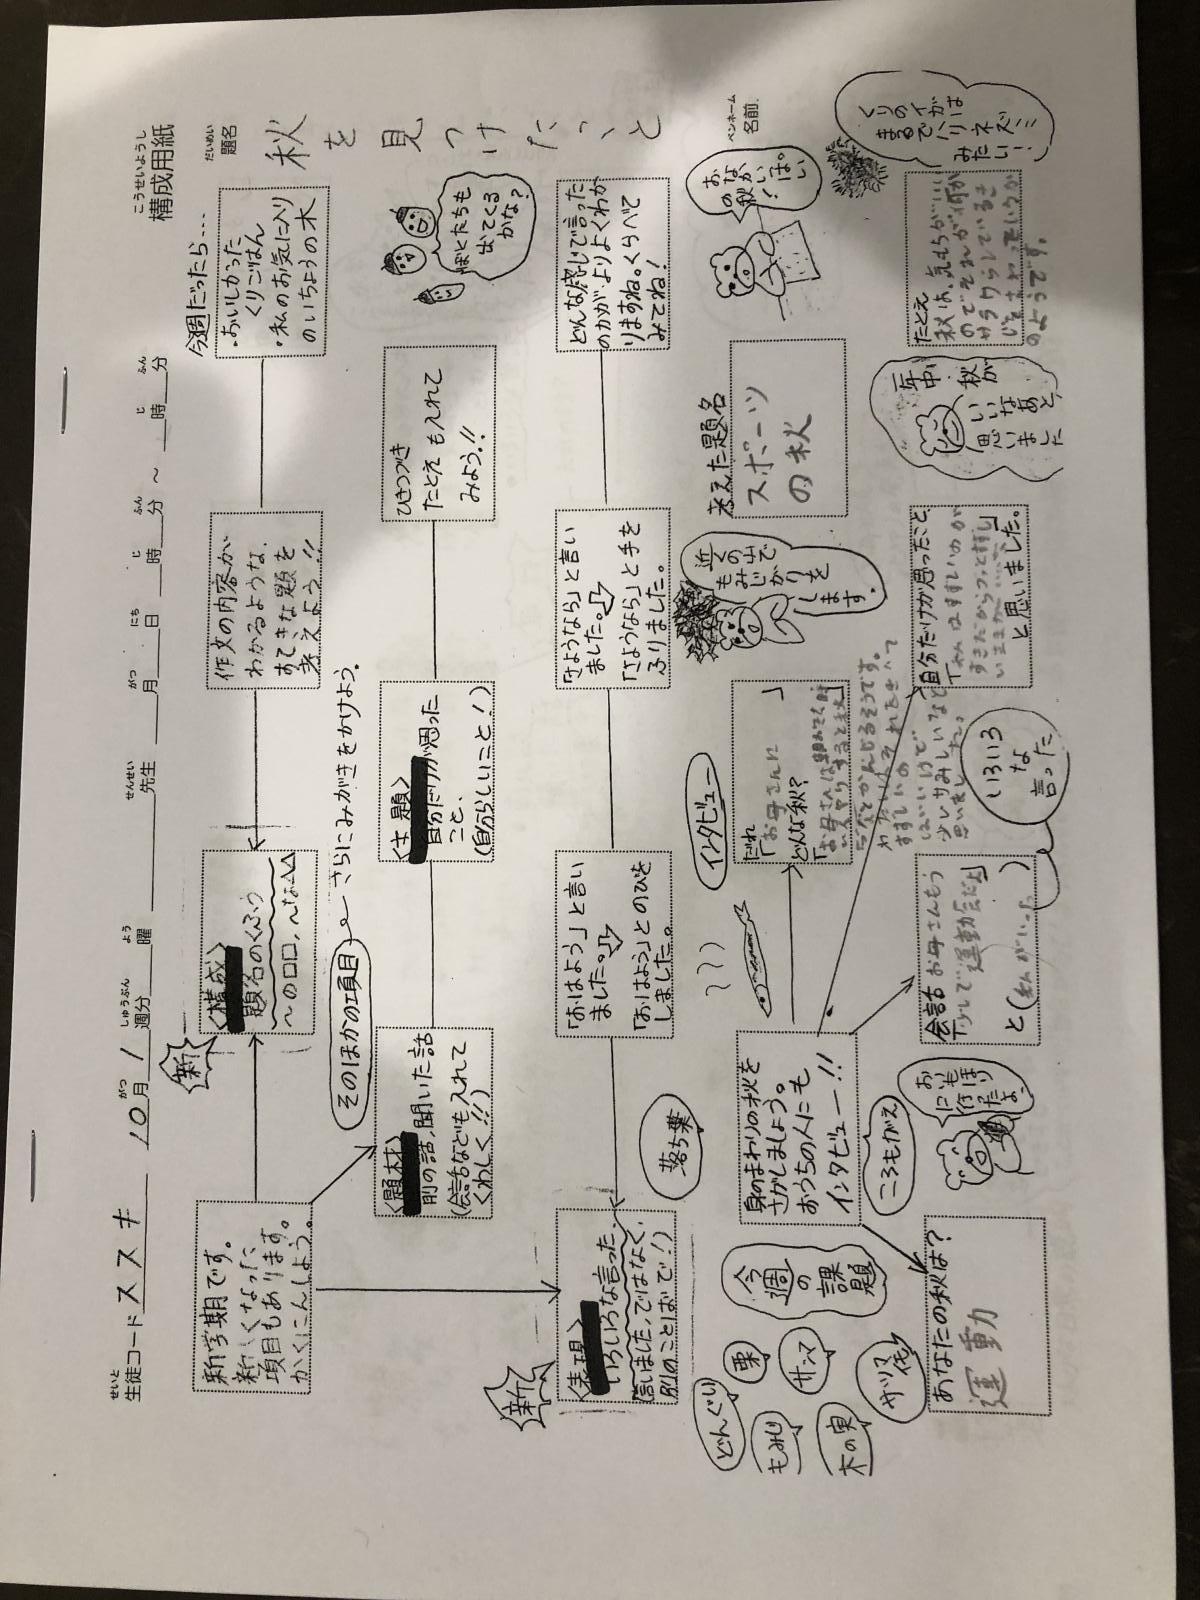 構成用紙
こうせいようし
生徒コード ススキ 10月1週分 曜 先生 月 日 時 分 ～ 時 分
せいと がつ しゅうぶん よう せんせい がつ にち じ ふん じ ふん
題名
だいめい
秋を見つけたこと
新学期です。
新しくなった、
項目もあります。
かくにんしよう。
新
〈構成〉
題名のくふう
～の□□、～な△△
作文の内容が
わかるような、
すてきな題を
考えよう!!
今週だったら...
・おいしかった
くりごはん
・私のお気に入り
のいちょうの木
そのほかの項目
さらにみがきをかけよう。
〈題材〉
前の話、聞いた話
(会話なども入れて
くわしく!!)
〈主題〉
自分だけが思った
こと、
(自分らしいこと!)
ひきつづき
たとえも入れて
みよう!!
ぼくたちも
出てくる
かな?
新
〈表現〉
いろいろな言った
(言いました、ではなく、
別のことばで!)
「おはよう」と言い
ました。
「おはよう」とのびを
しました。
「さようなら」と言い
ました。
「さようなら」と手を
ふりました。
どんな感じで言った
のかがよりよくわか
りますね。くらべて
みてね!
ペンネーム
名前
落ち葉
どんぐり
栗
もみじ
サンマ
木の実
サツマイモ
今週の課題
身のまわりの秋を
さがしましょう。
おうちの人にも
インタビュー!!
ころもがえ
インタビュー
だれ
「お母さんに 」
どんな秋?
近くの山で
もみじがりを
します。
考えた題名
スポーツ
の秋
おなか
いっぱい
の秋!
あなたの秋は?
運動
おにも
行ほり
だよ
会話
お母さんもう
少しで運動会だよ」
と(私がいった)
いろいろ
な
言った
自分だけが思ったこと
と思いました。
一年中
秋が
いいなあと
思いました
たとえ
のようです。
くりのイガは
まるでハリネズミ
みたい!